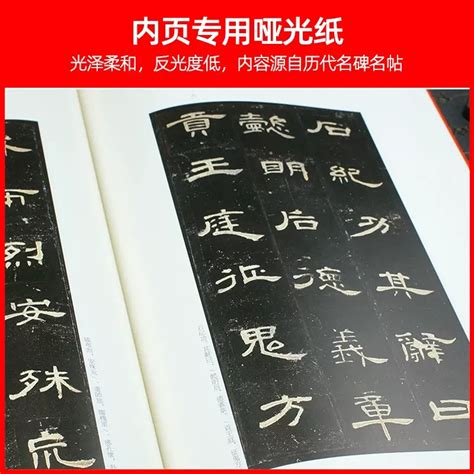 内页专用哑光纸
光泽柔和，反光度低，内容源自历代名碑名帖
石紀功其辭曰
懿明后德義章
貢王庭征鬼方
布烈安殊